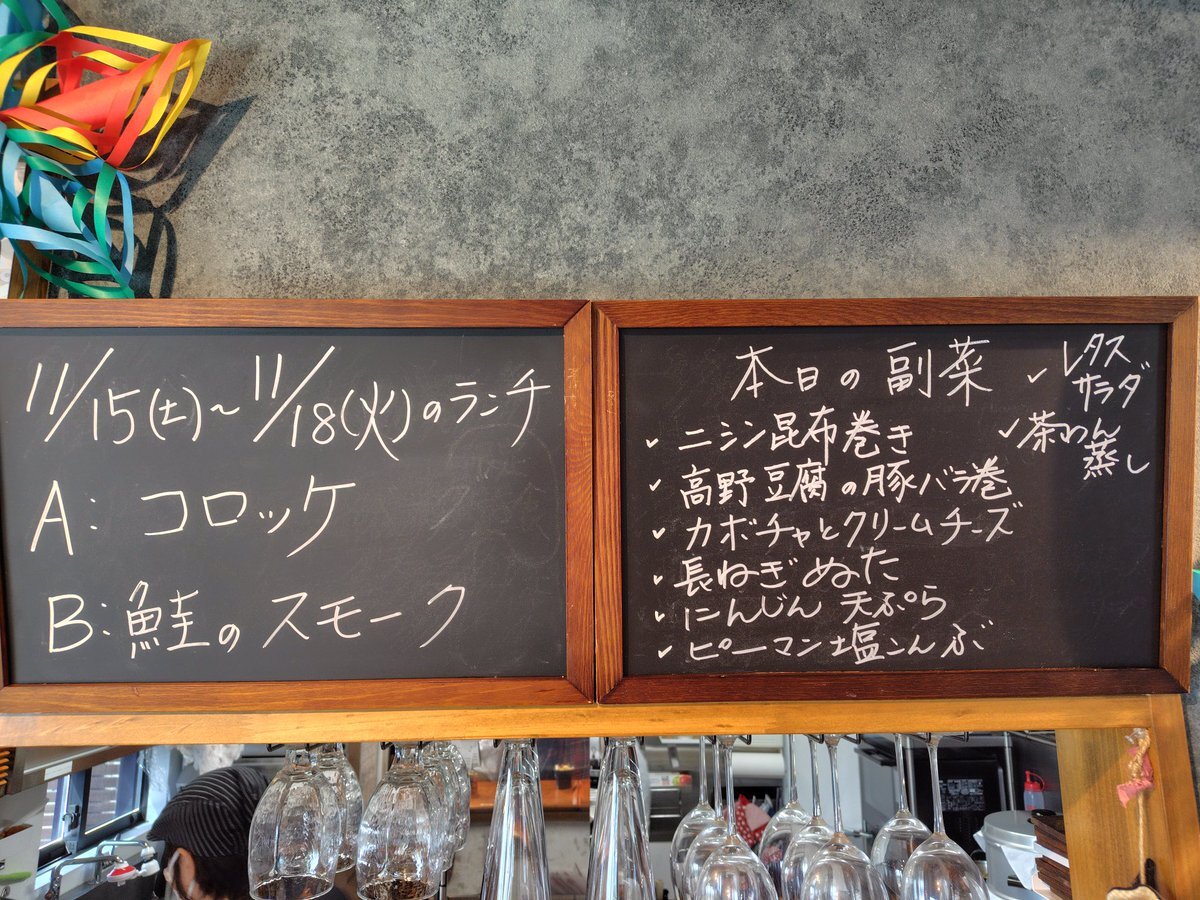 11/15(土)~11/18(火)のランチ
A: コロッケ
B: 鮭のスモーク
本日の副菜
✓ニシン昆布巻き
✓高野豆腐の豚バラ巻
✓カボチャとクリームチーズ
✓長ねぎぬた
✓にんじん天ぷら
✓ピーマン塩こんぶ
✓レタス
サラダ
✓茶わん
蒸し